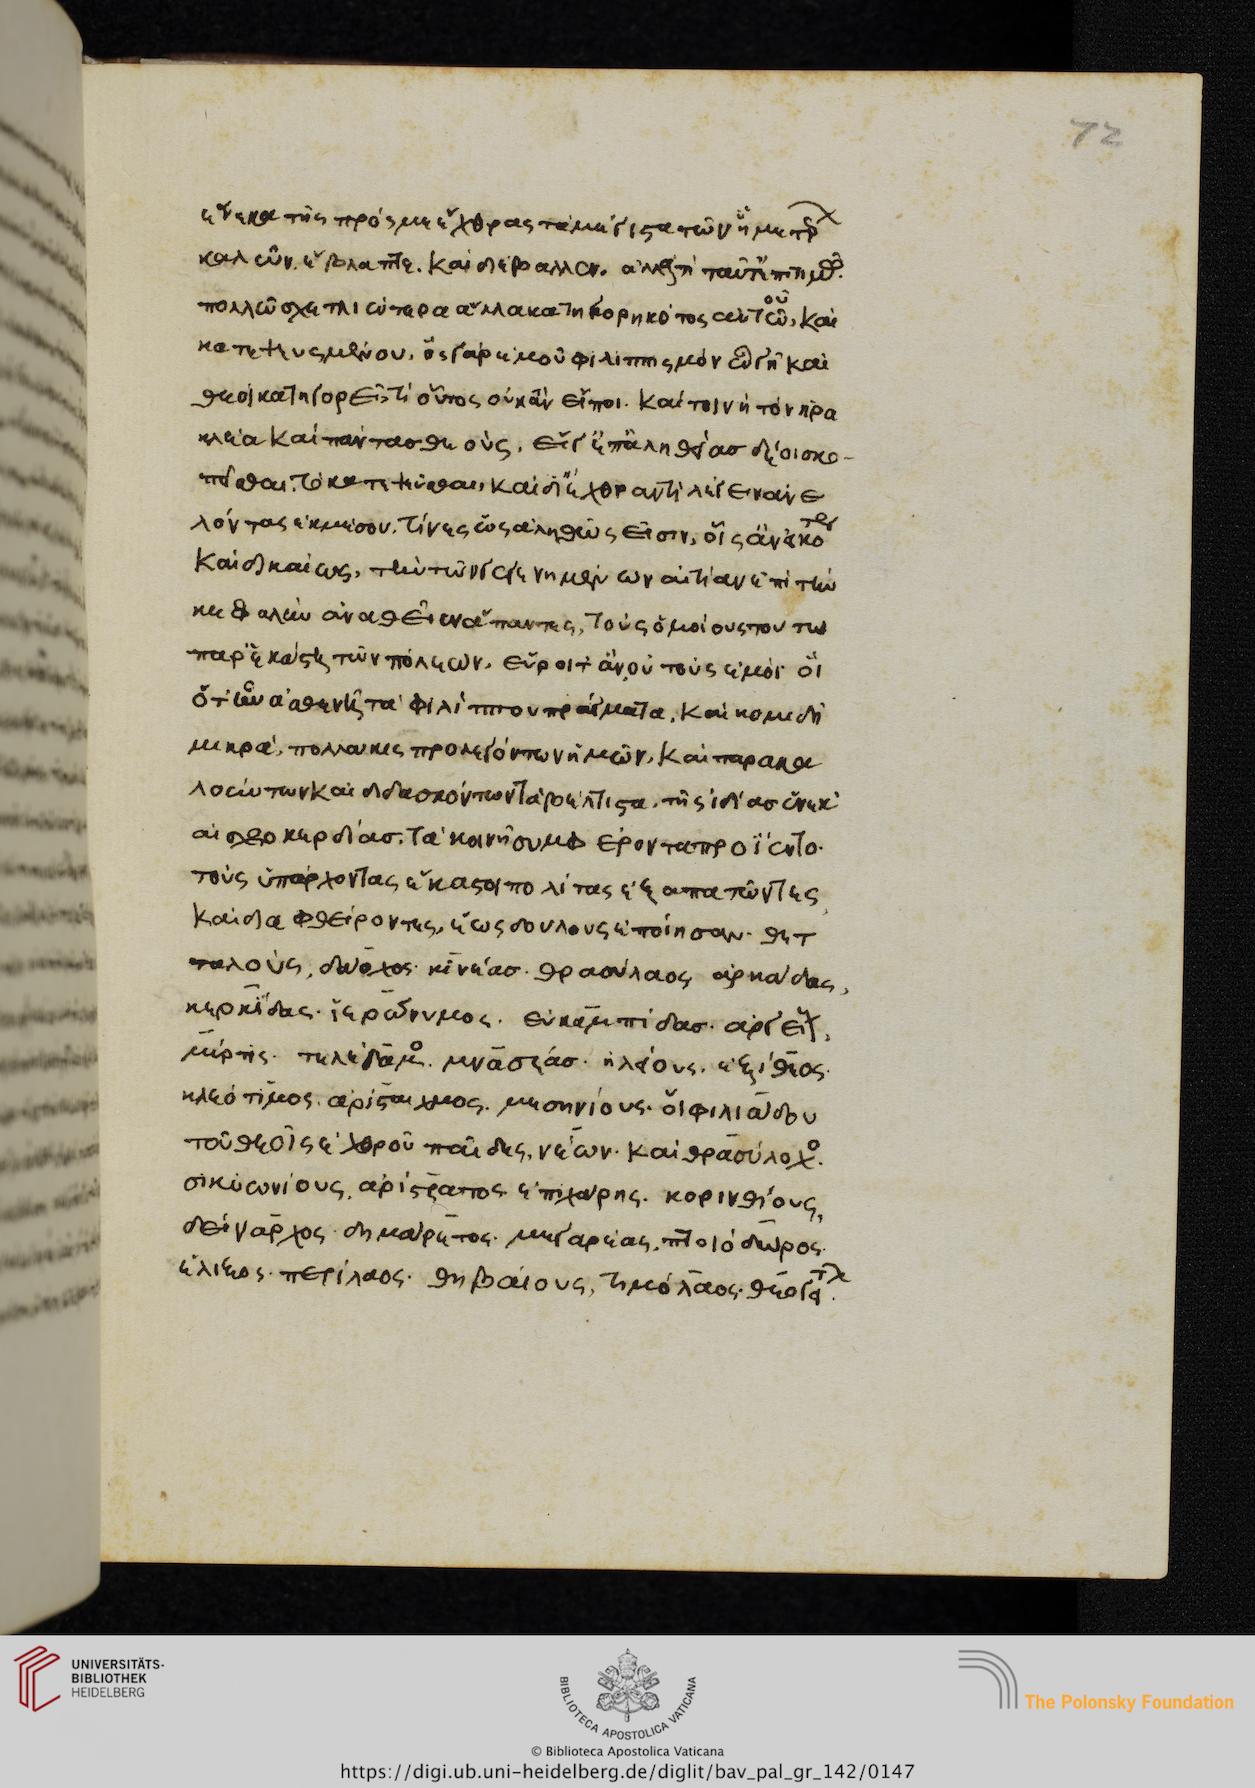 72
ἕνεκα τῆς πρός με ἔχθρας τὰ μέγιστα τῶν ἡμετέρων
καλῶν ἔβλαπτε. καὶ διέβαλλεν.
πολλῷ σχετλιώτερα ἄλλα κατηγορηκότος αὐτοῦ, καὶ
κατεψευσμένου. ὃς γὰρ ἐμοῦ φιλιππισμὸν ὦ γῆ καὶ
θεοὶ κατηγορεῖ, τί οὗτος οὐκ ἂν εἴποι. καίτοι νὴ τὸν ἡρα
κλέα καὶ πάντας θεούς, εἴ γ' ἐπ' ἀληθείας δέοι σκο-
πεῖσθαι, τὸ καταψεύσασθαι καὶ δι' ἔχθραν τι λέγειν ἀνε
λόντας ἐκ μέσου, τίνες ὡς ἀληθῶς εἰσιν, οἷς ἂν εἰκότως
καὶ δικαίως, τὴν τῶν γεγενημένων αἰτίαν ἐπὶ τὴν
κεφαλὴν ἀναθεῖεν ἅπαντες, τοὺς ὁμοίους τούτω
παρ' ἑκάστη τῶν πόλεων, εὕροιτ' ἂν, οὐ τοὺς ἐμοί· οἳ
ὅτ' ἦν ἀσθενῆ τὰ φιλίππου πράγματα, καὶ κομιδῆ
μικρά, πολλάκις προλεγόντων ἡμῶν, καὶ παρακα
λούντων καὶ διδασκόντων τὰ βέλτιστα, τῆς ἰδίας ἕνεκ'
αἰσχροκερδίας, τὰ κοινῆ συμφέροντα προΐεντο.
τοὺς ὑπάρχοντας ἕκαστοι πολίτας ἐξαπατῶντες
καὶ διαφθείροντες, ἕως δούλους ἐποίησαν. θετ
ταλούς, δάοχος· κινέας· θρασύλαος, ἀρκάδας,
κερκίδας· ἱερώνυμος· εὐκαμπίδας· ἀργείους,
μύρτις· τελέδαμος. μνασέας· ἠλείους, εὐξίθεος·
κλεότιμος. ἀρίσταιχμος. μεσηνίους· οἱ φιλιάδου
τοῦ θεοῖς ἐχθροῦ παῖδες, νέων· καὶ θρασύλοχος.
σικυωνίους, ἀρίστρατος· ἐπιχάρης. κορινθίους,
δείναρχος· δημάρετος· μεγαρέας, πτοιόδωρος·
ἕλιξος· περίλαος. θηβαίους, τιμόλαος· θεογείτων.
UNIVERSITÄTS-
BIBLIOTHEK
HEIDELBERG
BIBLIOTECA APOSTOLICA VATICANA
The Polonsky Foundation
© Biblioteca Apostolica Vaticana
https://digi.ub.uni-heidelberg.de/diglit/bav_pal_gr_142/0147